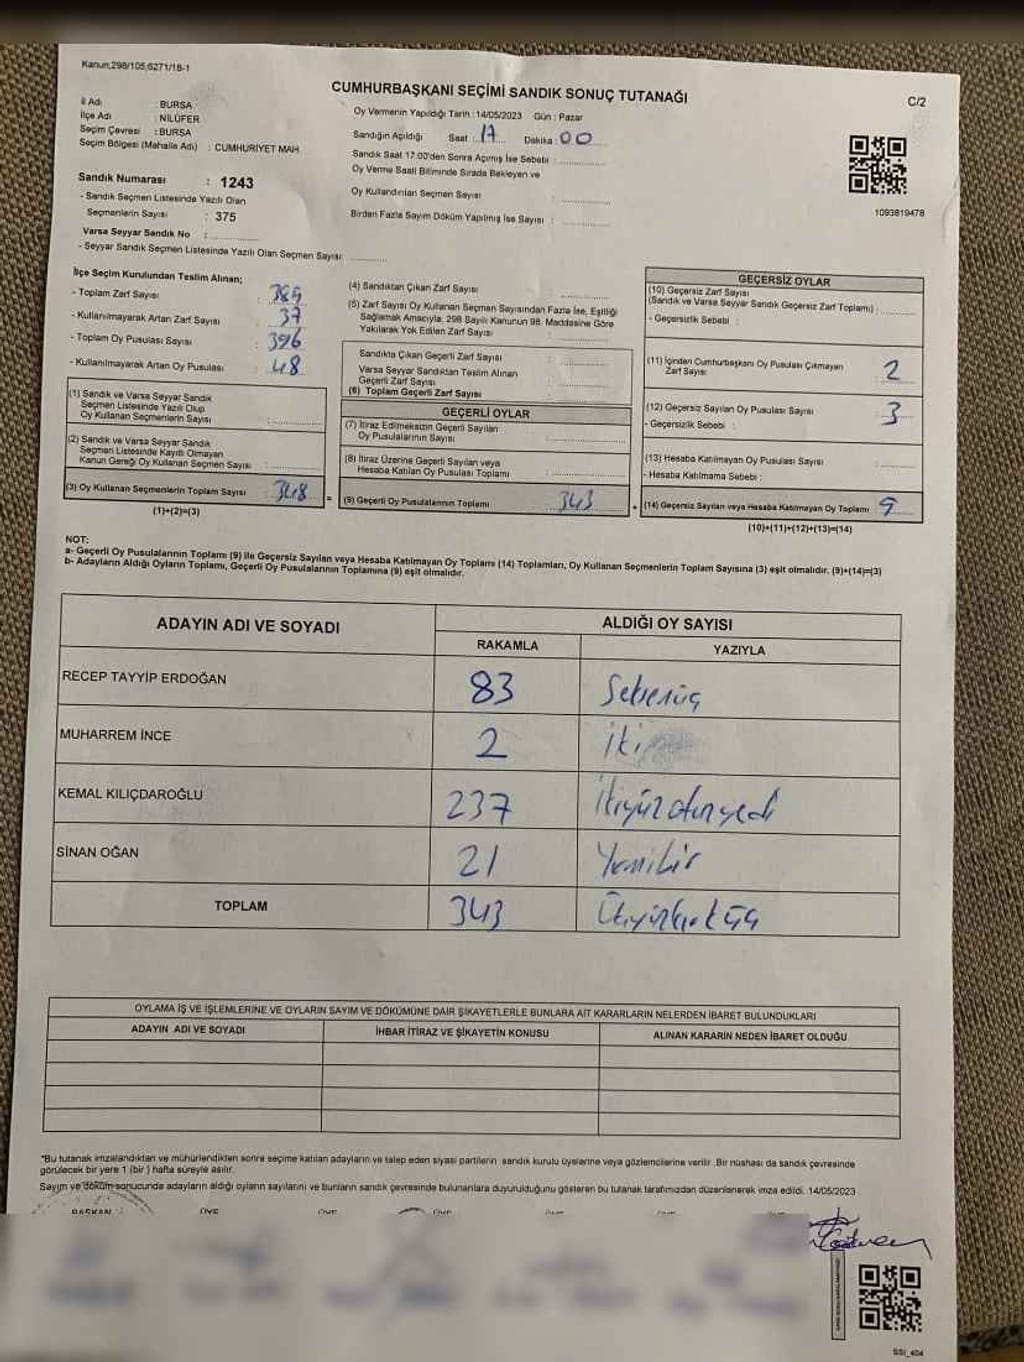 Kanun;298/105,6271/18-1
CUMHURBAŞKANI SEÇİMİ SANDIK SONUÇ TUTANAĞI
C/2
İl Adı : BURSA
İlçe Adı : NİLÜFER
Seçim Çevresi : BURSA
Seçim Bölgesi (Mahalle Adı) : CUMHURİYET MAH.
Sandık Numarası : 1243
- Sandık Seçmen Listesinde Yazılı Olan
Seçmenlerin Sayısı : 375
Varsa Seyyar Sandık No :
- Seyyar Sandık Seçmen Listesinde Yazılı Olan Seçmen Sayısı:
Oy Vermenin Yapıldığı Tarih : 14/05/2023 Gün : Pazar
Sandığın Açıldığı Saat : 17 Dakika : 00
Sandık Saat 17:00'den Sonra Açılmış İse Sebebi :
Oy Verme Saati Bitiminde Sırada Bekleyen ve
Oy Kullandırılan Seçmen Sayısı :
Birden Fazla Sayım Döküm Yapılmış İse Sayısı :
1093819478
İlçe Seçim Kurulundan Teslim Alınan;
- Toplam Zarf Sayısı : 385
- Kullanılmayarak Artan Zarf Sayısı : 37
- Toplam Oy Pusulası Sayısı : 396
- Kullanılmayarak Artan Oy Pusulası : 48
(1) Sandık ve Varsa Seyyar Sandık
Seçmen Listesinde Yazılı Olup
Oy Kullanan Seçmenlerin Sayısı :
(2) Sandık ve Varsa Seyyar Sandık
Seçmen Listesinde Kayıtlı Olmayan
Kanun Gereği Oy Kullanan Seçmen Sayısı :
(3) Oy Kullanan Seçmenlerin Toplam Sayısı : 348
(1)+(2)=(3)
(4) Sandıktan Çıkan Zarf Sayısı :
(5) Zarf Sayısı Oy Kullanan Seçmen Sayısından Fazla İse, Eşitliği
Sağlamak Amacıyla, 298 Sayılı Kanunun 98. Maddesine Göre
Yakılarak Yok Edilen Zarf Sayısı :
Sandıkta Çıkan Geçerli Zarf Sayısı :
Varsa Seyyar Sandıktan Teslim Alınan
Geçerli Zarf Sayısı :
(6) Toplam Geçerli Zarf Sayısı :
GEÇERLİ OYLAR
(7) İtiraz Edilmeksizin Geçerli Sayılan
Oy Pusulalarının Sayısı :
(8) İtiraz Üzerine Geçerli Sayılan veya
Hesaba Katılan Oy Pusulası Toplamı :
=
(9) Geçerli Oy Pusulalarının Toplamı : 343
+
GEÇERSİZ OYLAR
(10) Geçersiz Zarf Sayısı
(Sandık ve Varsa Seyyar Sandık Geçersiz Zarf Toplamı) :
- Geçersizlik Sebebi :
(11) İçinden Cumhurbaşkanı Oy Pusulası Çıkmayan
Zarf Sayısı : 2
(12) Geçersiz Sayılan Oy Pusulası Sayısı : 3
- Geçersizlik Sebebi :
(13) Hesaba Katılmayan Oy Pusulası Sayısı :
- Hesaba Katılmama Sebebi :
(14) Geçersiz Sayılan veya Hesaba Katılmayan Oy Toplamı
(10)+(11)+(12)+(13)=(14)
NOT:
a- Geçerli Oy Pusulalarının Toplamı (9) ile Geçersiz Sayılan veya Hesaba Katılmayan Oy Toplamı (14) Toplamları, Oy Kullanan Seçmenlerin Toplam Sayısına (3) eşit olmalıdır. (9)+(14)=(3)
b- Adayların Aldığı Oyların Toplamı, Geçerli Oy Pusulalarının Toplamına (9) eşit olmalıdır.
ADAYIN ADI VE SOYADI
ALDIĞI OY SAYISI
RAKAMLA YAZIYLA
RECEP TAYYİP ERDOĞAN 83 Seksenüç
MUHARREM İNCE 2 İki
KEMAL KILIÇDAROĞLU 237
SİNAN OĞAN 21 Yirmibir
TOPLAM 343 Üçyüzkırküç
OYLAMA İŞ VE İŞLEMLERİNE VE OYLARIN SAYIM VE DÖKÜMÜNE DAİR ŞİKAYETLERLE BUNLARA AİT KARARLARIN NELERDEN İBARET BULUNDUKLARI
ADAYIN ADI VE SOYADI İHBAR İTİRAZ VE ŞİKAYETİN KONUSU ALINAN KARARIN NEDEN İBARET OLDUĞU
*Bu tutanak imzalandıktan ve mühürlendikten sonra seçime katılan adayların ve talep eden siyasi partilerin sandık kurulu üyelerine veya gözlemcilerine verilir. Bir nüshası da sandık çevresinde
görülecek bir yere 1 (bir) hafta süreyle asılır.
Sayım ve döküm sonucunda adayların aldığı oyların sayılarını ve bunların sandık çevresinde bulunanlara duyurulduğunu gösteren bu tutanak tarafımızdan düzenlenerek imza edildi. 14/05/2023
BAŞKAN ÜYE ÜYE ÜYE
SSI_404